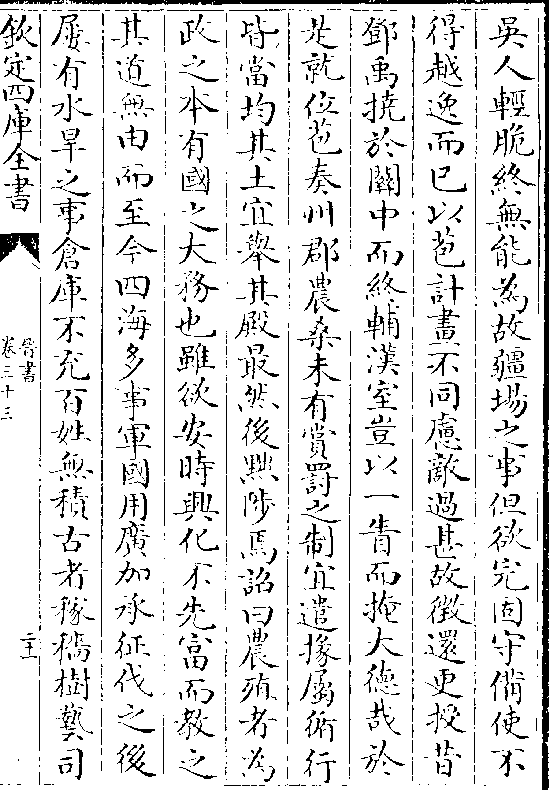 吳人輕脆終無能爲故疆場之事但欲完固守備使不
得越逸而已以苞計畫不同慮敵過甚故徵還更授昔
鄧禹撓於關中而終輔漢室豈以一眚而掩大德哉於
是就位苞奏州郡農桑未有賞罰之制宜遣掾屬循行
皆當均其土宜舉其殿最然後黜陟焉詔曰農殖者爲
政之本有國之大務也雖欲安時興化不先富而教之
其道無由而至今四海多事軍國用廣加承征伐之後
屢有水旱之事倉庫不充百姓無積古者稼穡樹藝司
欽定四庫全書
晉書
卷三十三